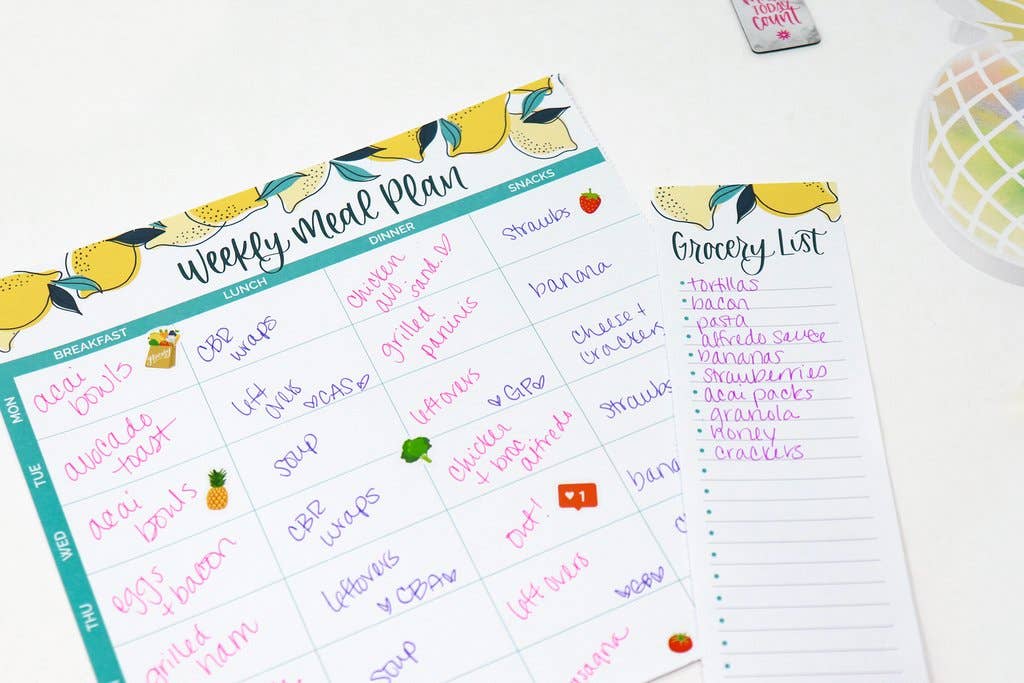 TODAY
count
Weekly Meal Plan
BREAKFAST
LUNCH
DINNER
SNACKS
MON
acai
bowls
CBR
wraps
chicken
avo. sand. ♡
strawbs
TUE
avocado
toast
left
overs
♡CAS♡
grilled
paninis
banana
WED
acai
bowls
soup
leftovers
♡GP♡
cheese +
crackers
THU
eggs
+ bacon
CBR
wraps
chicken
+ broc
alfredo
strawbs
grilled
ham
leftovers
♡CBA♡
out!
1
bana
soup
left overs
asagna
Grocery List
tortillas
bacon
pasta
alfredo sauce
bananas
strawberries
acai packs
granola
honey
crackers